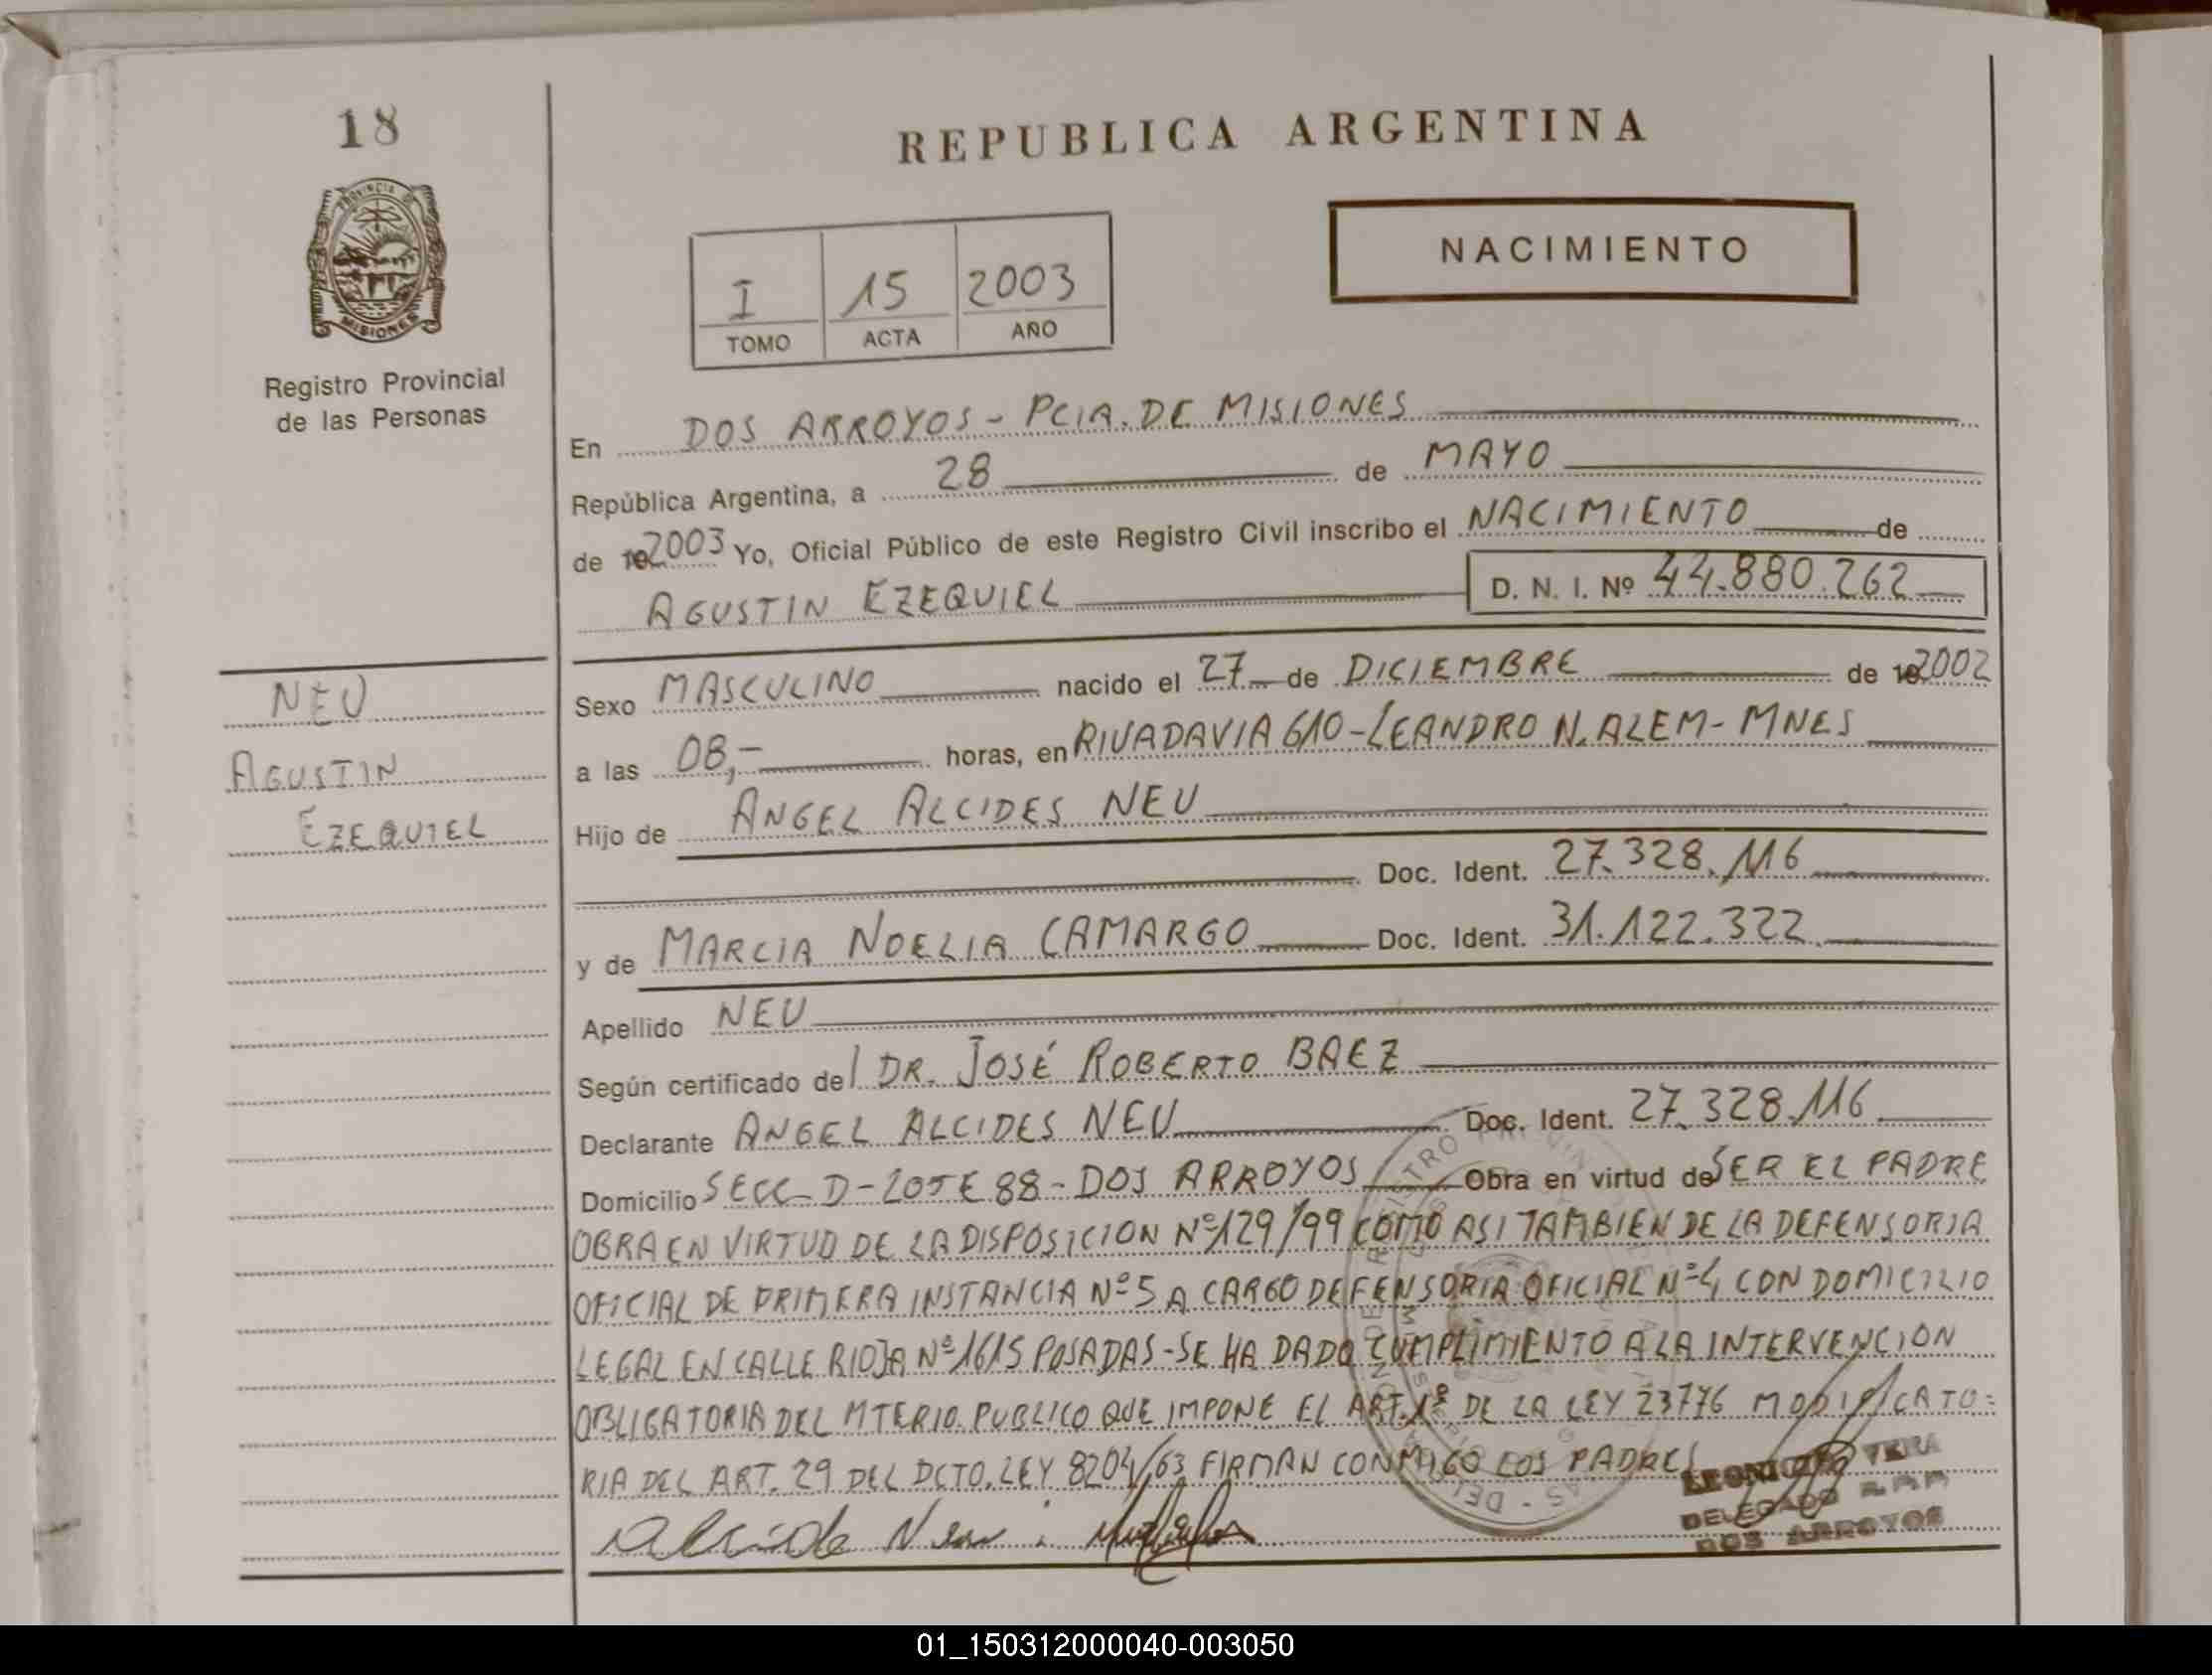 18
REPUBLICA ARGENTINA
NACIMIENTO
I 15 2003
TOMO ACTA AÑO
PROVINCIA DE
MISIONES
Registro Provincial
de las Personas
En DOS ARROYOS - PCIA. DE MISIONES
República Argentina, a 28 de MAYO
de 192003 Yo, Oficial Público de este Registro Civil inscribo el NACIMIENTO de
AGUSTIN EZEQUIEL D. N. I. Nº 44.880.262
NEU
AGUSTIN
EZEQUIEL
Sexo MASCULINO nacido el 27 de DICIEMBRE de 192002
a las 08,- horas, en RIVADAVIA 610-LEANDRO N. ALEM-MNES
Hijo de ANGEL ALCIDES NEU
Doc. Ident. 27.328.116
y de MARCIA NOELIA CAMARGO Doc. Ident. 31.122.322
Apellido NEU
Según certificado del DR. JOSÉ ROBERTO BAEZ
Declarante ANGEL ALCIDES NEU Doc. Ident. 27.328.116
Domicilio SECC D-LOTE 88-DOS ARROYOS Obra en virtud de SER EL PADRE
OBRA EN VIRTUD DE LA DISPOSICION Nº129/99 COMO ASI TAMBIEN DE LA DEFENSORIA
OFICIAL DE PRIMERA INSTANCIA Nº5 A CARGO DEFENSORIA OFICIAL Nº4 CON DOMICILIO
LEGAL EN CALLE RIOJA Nº1615 POSADAS-SE HA DADO CUMPLIMIENTO A LA INTERVENCION
OBLIGATORIA DEL MTERIO PUBLICO QUE IMPONE EL ART.1º DE LA LEY 23776 MODIFICATO=
RIA DEL ART. 29 DEL DCTO. LEY 8204/63 FIRMAN CONMIGO LOS PADRES
Alcide Neu
VERA
DELEGADO
DOS ARROYOS
01_150312000040-003050